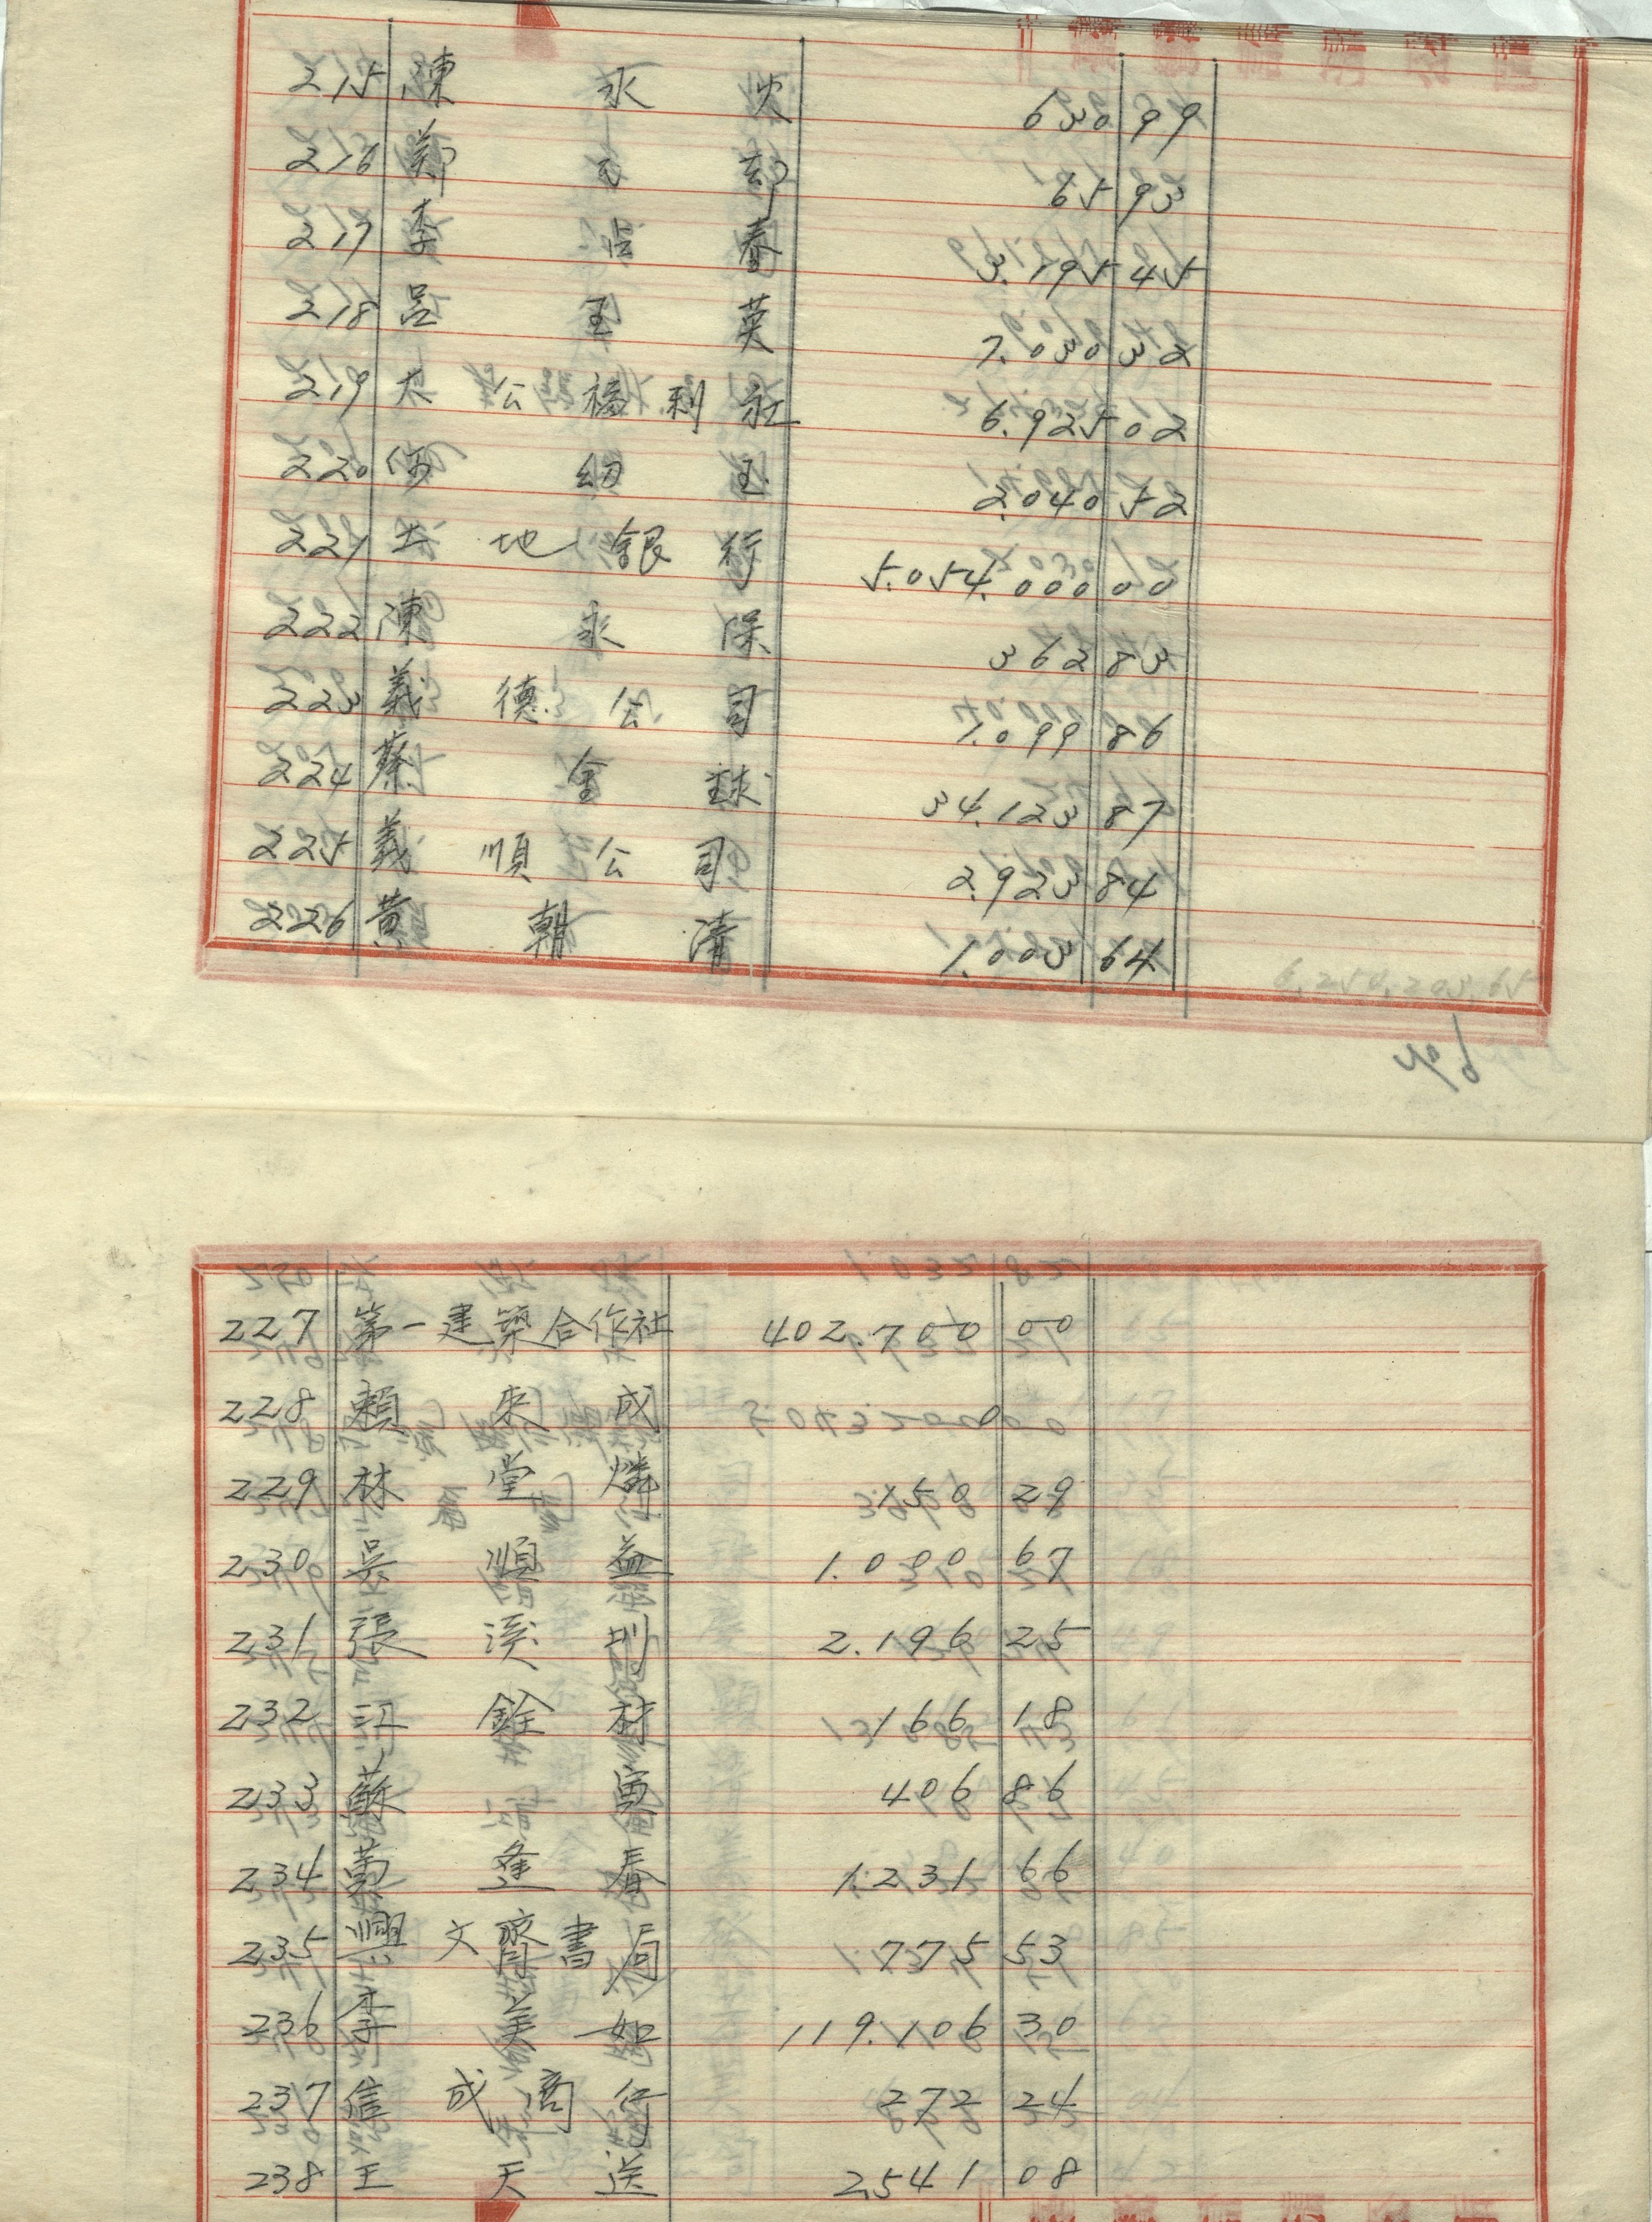 215 陳永火 630 99
216 鄭玉郎 65 93
217 李浩春 3.195 45
218 呂玉英 7.030 32
219 大公福利社 6.925 02
220 何幼玉 2.040 52
221 土地銀行 5.054.000 00
222 陳永保 362 83
223 義德公司 1.099 86
224 蔡金球 34.123 87
225 義順公司 2.923 84
226 黃朝清 1.003 64
227 第一建築合作社 402.700 00
228 賴来成 0
229 林堂燐 150 29
230 吳順益 1.000 67
231 張溪圳 2.196 25
232 江銓材 166 18
233 蘇寅 406 86
234 萬逢春 1.231 66
235 興文齋書局 775 53
236 李美如 119.106 30
237 信成商行 272 24
238 王天送 2,541 08